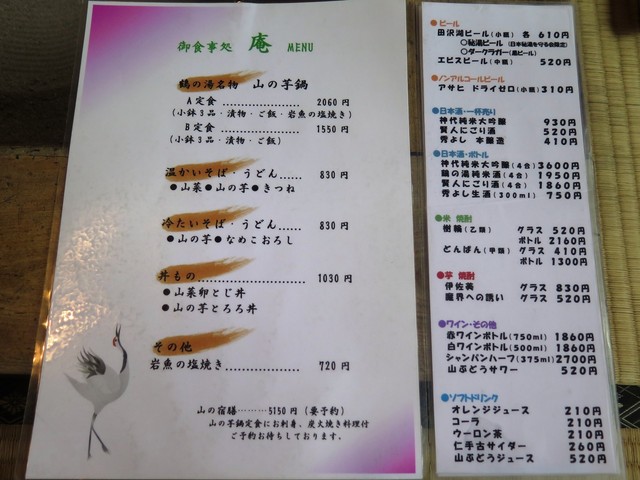 御食事処 庵 MENU
鶴の湯名物 山の芋鍋
A定食 ………………… 2060円
(小鉢3品・漬物・ご飯・岩魚の塩焼き)
B定食 ………………… 1550円
(小鉢3品・漬物・ご飯)
温かいそば・うどん…… 830円
●山菜●山の芋●きつね
冷たいそば・うどん…… 830円
●山の芋●なめこおろし
丼もの……………………… 1030円
●山菜卵とじ丼
●山の芋とろろ丼
その他
岩魚の塩焼き………………… 720円
山の宿膳………5150円(要予約)
山の芋鍋定食にお刺身、炭火焼き料理付
ご予約お待ちしております。
●ビール
田沢湖ビール(小瓶) 各 610円
○秘湯ビール (日本秘湯を守る会限定)
○ダークラガー(黒ビール)
エビスビール(中瓶) 520円
●ノンアルコールビール
アサヒ ドライゼロ(小瓶) 310円
●日本酒・一杯売り
神代純米大吟醸 930円
賢人にごり酒 520円
秀よし 本醸造 410円
●日本酒・ボトル
神代純米大吟醸(4合) 3600円
鶴の湯純米酒(4合) 1950円
賢人にごり酒(4合) 1860円
秀よし生酒(300ml) 750円
●米 焼酎
樹輪(乙類) グラス 520円
ボトル 2160円
どんぱん(甲類) グラス 410円
ボトル 1300円
●芋 焼酎
伊佐美 グラス 830円
魔界への誘い グラス 520円
●ワイン・その他
赤ワインボトル(750ml) 1860円
白ワインボトル(500ml) 1860円
シャンパンハーフ(375ml) 2700円
山ぶどうサワー 520円
●ソフトドリンク
オレンジジュース 210円
コーラ 210円
ウーロン茶 210円
仁手古サイダー 260円
山ぶどうジュース 520円